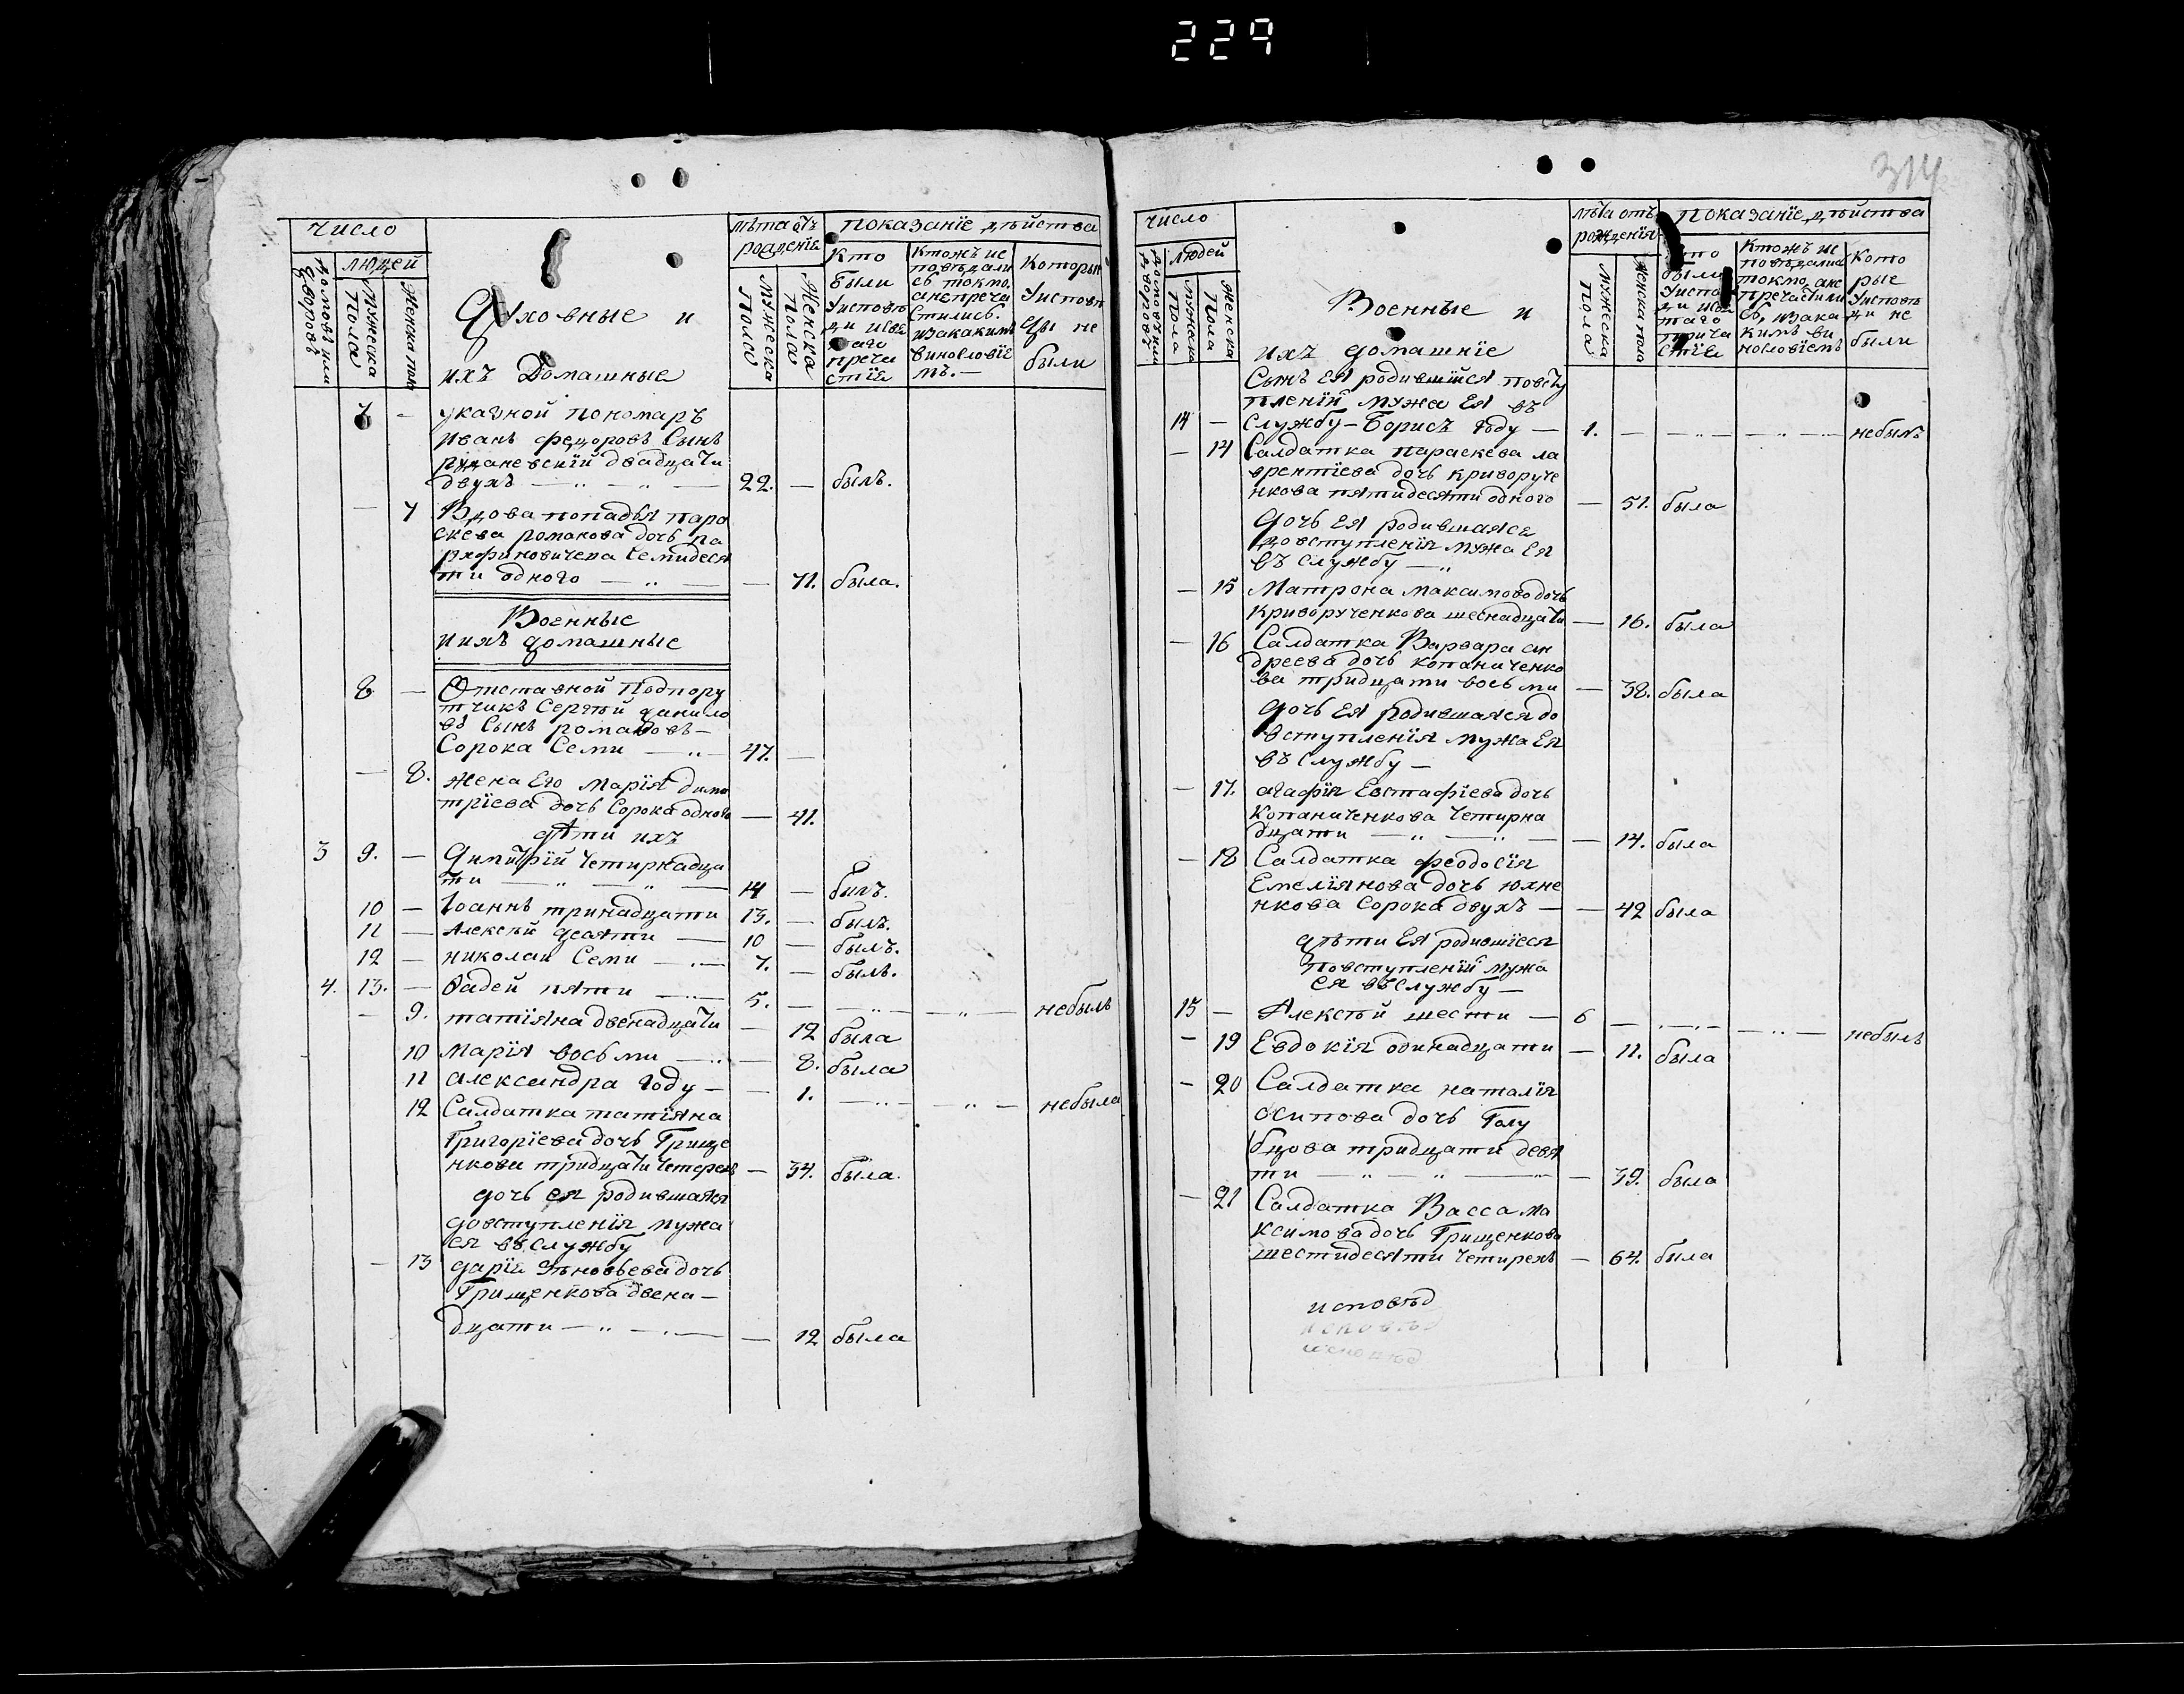 229
число
людей
домовъ или дворовъ
Мужеска пола
Женска пола
Духовные и
ихъ Домашные
лѣта отъ рождения
Мужеска пола
Женска пола
показанїе дѣйства
Кто
были
Уисповѣ
ди исвя
таго
прича
стїя
Ктожъ ис
повѣдали
сь токмо,
анепреча
стились.
изакакимъ
винословїе
мъ.—
Которыи
Уисповѣ
ды не
были
7 — указной пономаръ
иванъ федоровъ Сынъ
двадцати
двухъ — 22. — былъ.
— 7 Вдова попадья пара
скева романова дочь
семидеся
ти одного — — 71. была.
Военные
иихъ домашные
8. — Отставной Подпору
тчикъ Сергѣй данило
въ Сынъ романовъ —
Сорока Семи — 47. —
— 8. жена Его Марїя дими
трїева дочь Сорока одного — 41.
дѣти ихъ
3 9. — Димитрїй Четирнадца
ти — 14 — билъ.
10 — Іоаннъ тринадцати 13. — былъ.
11 — Алексѣй десяти — 10 — былъ.
12 — николай Семи — 7. — былъ.
4. 13. — Фадей пяти — 5. — — — небылъ
— 9. татїяна двенадцати — 12 была
10 марїя восьми — — 8. была
11 александра году — — 1. — — небыла
12 Салдатка татїяна
Григорїева дочь Грище
нкова тридцати четырехъ — 34. была.
дочь ея родившаяся
довступленїя мужа
ея въ службу
— 13 дарїя Зѣновьева дочь
Грищенкова двена —
дцати — — 12 была
314
число
людей
домовъ или дворовъ
мужеска пола
женска пола
Военные и
ихъ домашнїе
лѣта отъ рожденїя
мужеска пола
женска пола
показанїе дѣйства
Кто
были
Уиспо
ди исвя
таго
прича
стїя
Ктожъ ис
повѣдалис
токмо, ане
пречастили
сь, изака
кимъ ви
нословїемъ
Кото
рые
Уисповѣ
ди не
были
Сынъ ея родившїйся повсту
пленїй мужа Ея въ
14 — службу — Борисъ Году — 1. — — — небылъ
— 14 Салдатка параскева ла
врентїева дочь криворуче
нкова пятидесяти одного — 51. была
Дочь ея родившаяся
довступленїя мужа Ея
въ службу —
— 15 Матрона максимова дочь
криворученкова шеснадцати — 16. была
— 16 Салдатка Варвара ан
дреева дочь копаниченко
ва тридцати восьми — 38. была
дочь ея родившаяся до
вступленїя мужа Ея
въ службу —
— 17. агафїя Евстафїева дочь
Копаниченкова Четирна
дцати — — 14. была
— 18 Салдатка феодосїя
Емелїянова дочь юхне
нкова сорока двухъ — — 42 была
дѣти Ея родившїеся
повступленїй мужа
ея въ службу —
15 — Алексѣй шести — 6 — — — небылъ
— 19 Евдокїя одинадцати — 11. была
— 20 Салдатка наталїя
Осипова дочь Голу
бцова тридцати девя
ти — — 39. была
— 21 Салдатка Васса ма
ксимова дочь Грищенкова
шестидесяти четирехъ — 64. была
исповѣд
исповѣд
исповѣд